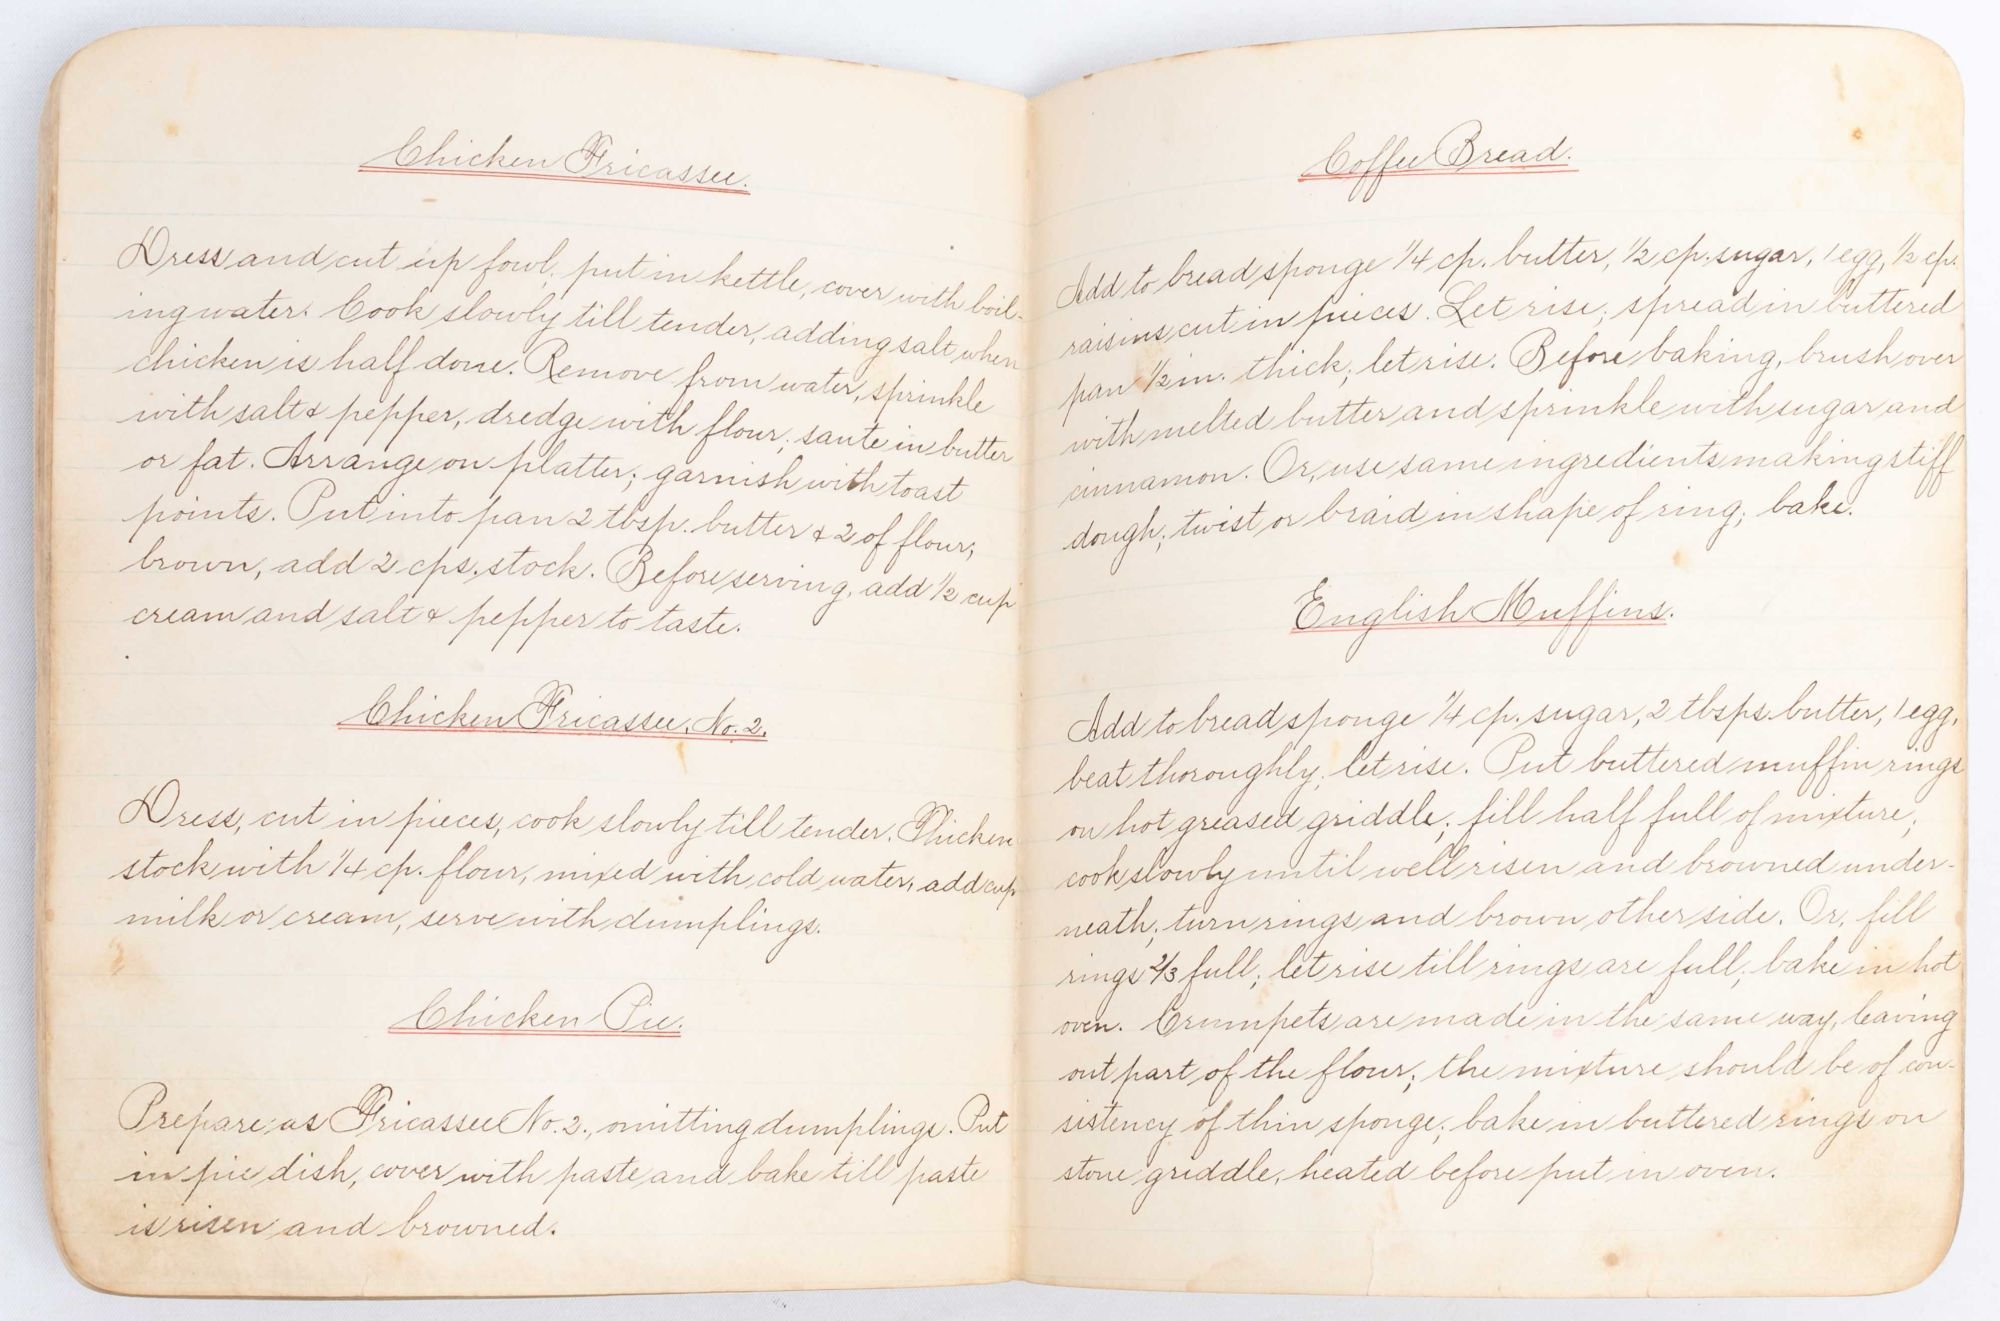 Chicken Fricassee.
Dress and cut up fowl, put in kettle, cover with boil-
ing water. Cook slowly till tender, adding salt when
chicken is half done. Remove from water, sprinkle
with salt & pepper, dredge with flour; saute in butter
or fat. Arrange on platter; garnish with toast
points. Put into pan 2 tbsp. butter & 2 of flour;
brown, add 2 cps. stock. Before serving, add 1/2 cup
cream and salt & pepper to taste.
Chicken Fricassee, No. 2.
Dress, cut in pieces, cook slowly till tender. Thicken
stock with 1/4 cp. flour, mixed with cold water, add cup
milk or cream, serve with dumplings.
Chicken Pie.
Prepare as Fricassee No. 2., omitting dumplings. Put
in pie dish, cover with paste and bake till paste
is risen and browned.
Coffee Bread.
Add to bread sponge 1/4 cp. butter, 1/2 cp. sugar, 1 egg, 1/2 cp.
raisins cut in pieces. Let rise; spread in buttered
pan 1/2 in. thick; let rise. Before baking, brush over
with melted butter and sprinkle with sugar and
cinnamon. Or, use same ingredients making stiff
dough; twist or braid in shape of ring; bake.
English Muffins.
Add to bread sponge 1/4 cp. sugar, 2 tbsps. butter, 1 egg,
beat thoroughly; let rise. Put buttered muffin rings
on hot greased griddle; fill half full of mixture;
cook slowly until well risen and browned under-
neath; turn rings and brown other side. Or, fill
rings 2/3 full; let rise till rings are full; bake in hot
oven. Crumpets are made in the same way, leaving
out part of the flour; the mixture should be of con-
sistency of thin sponge; bake in buttered rings on
stone griddle, heated before put in oven.